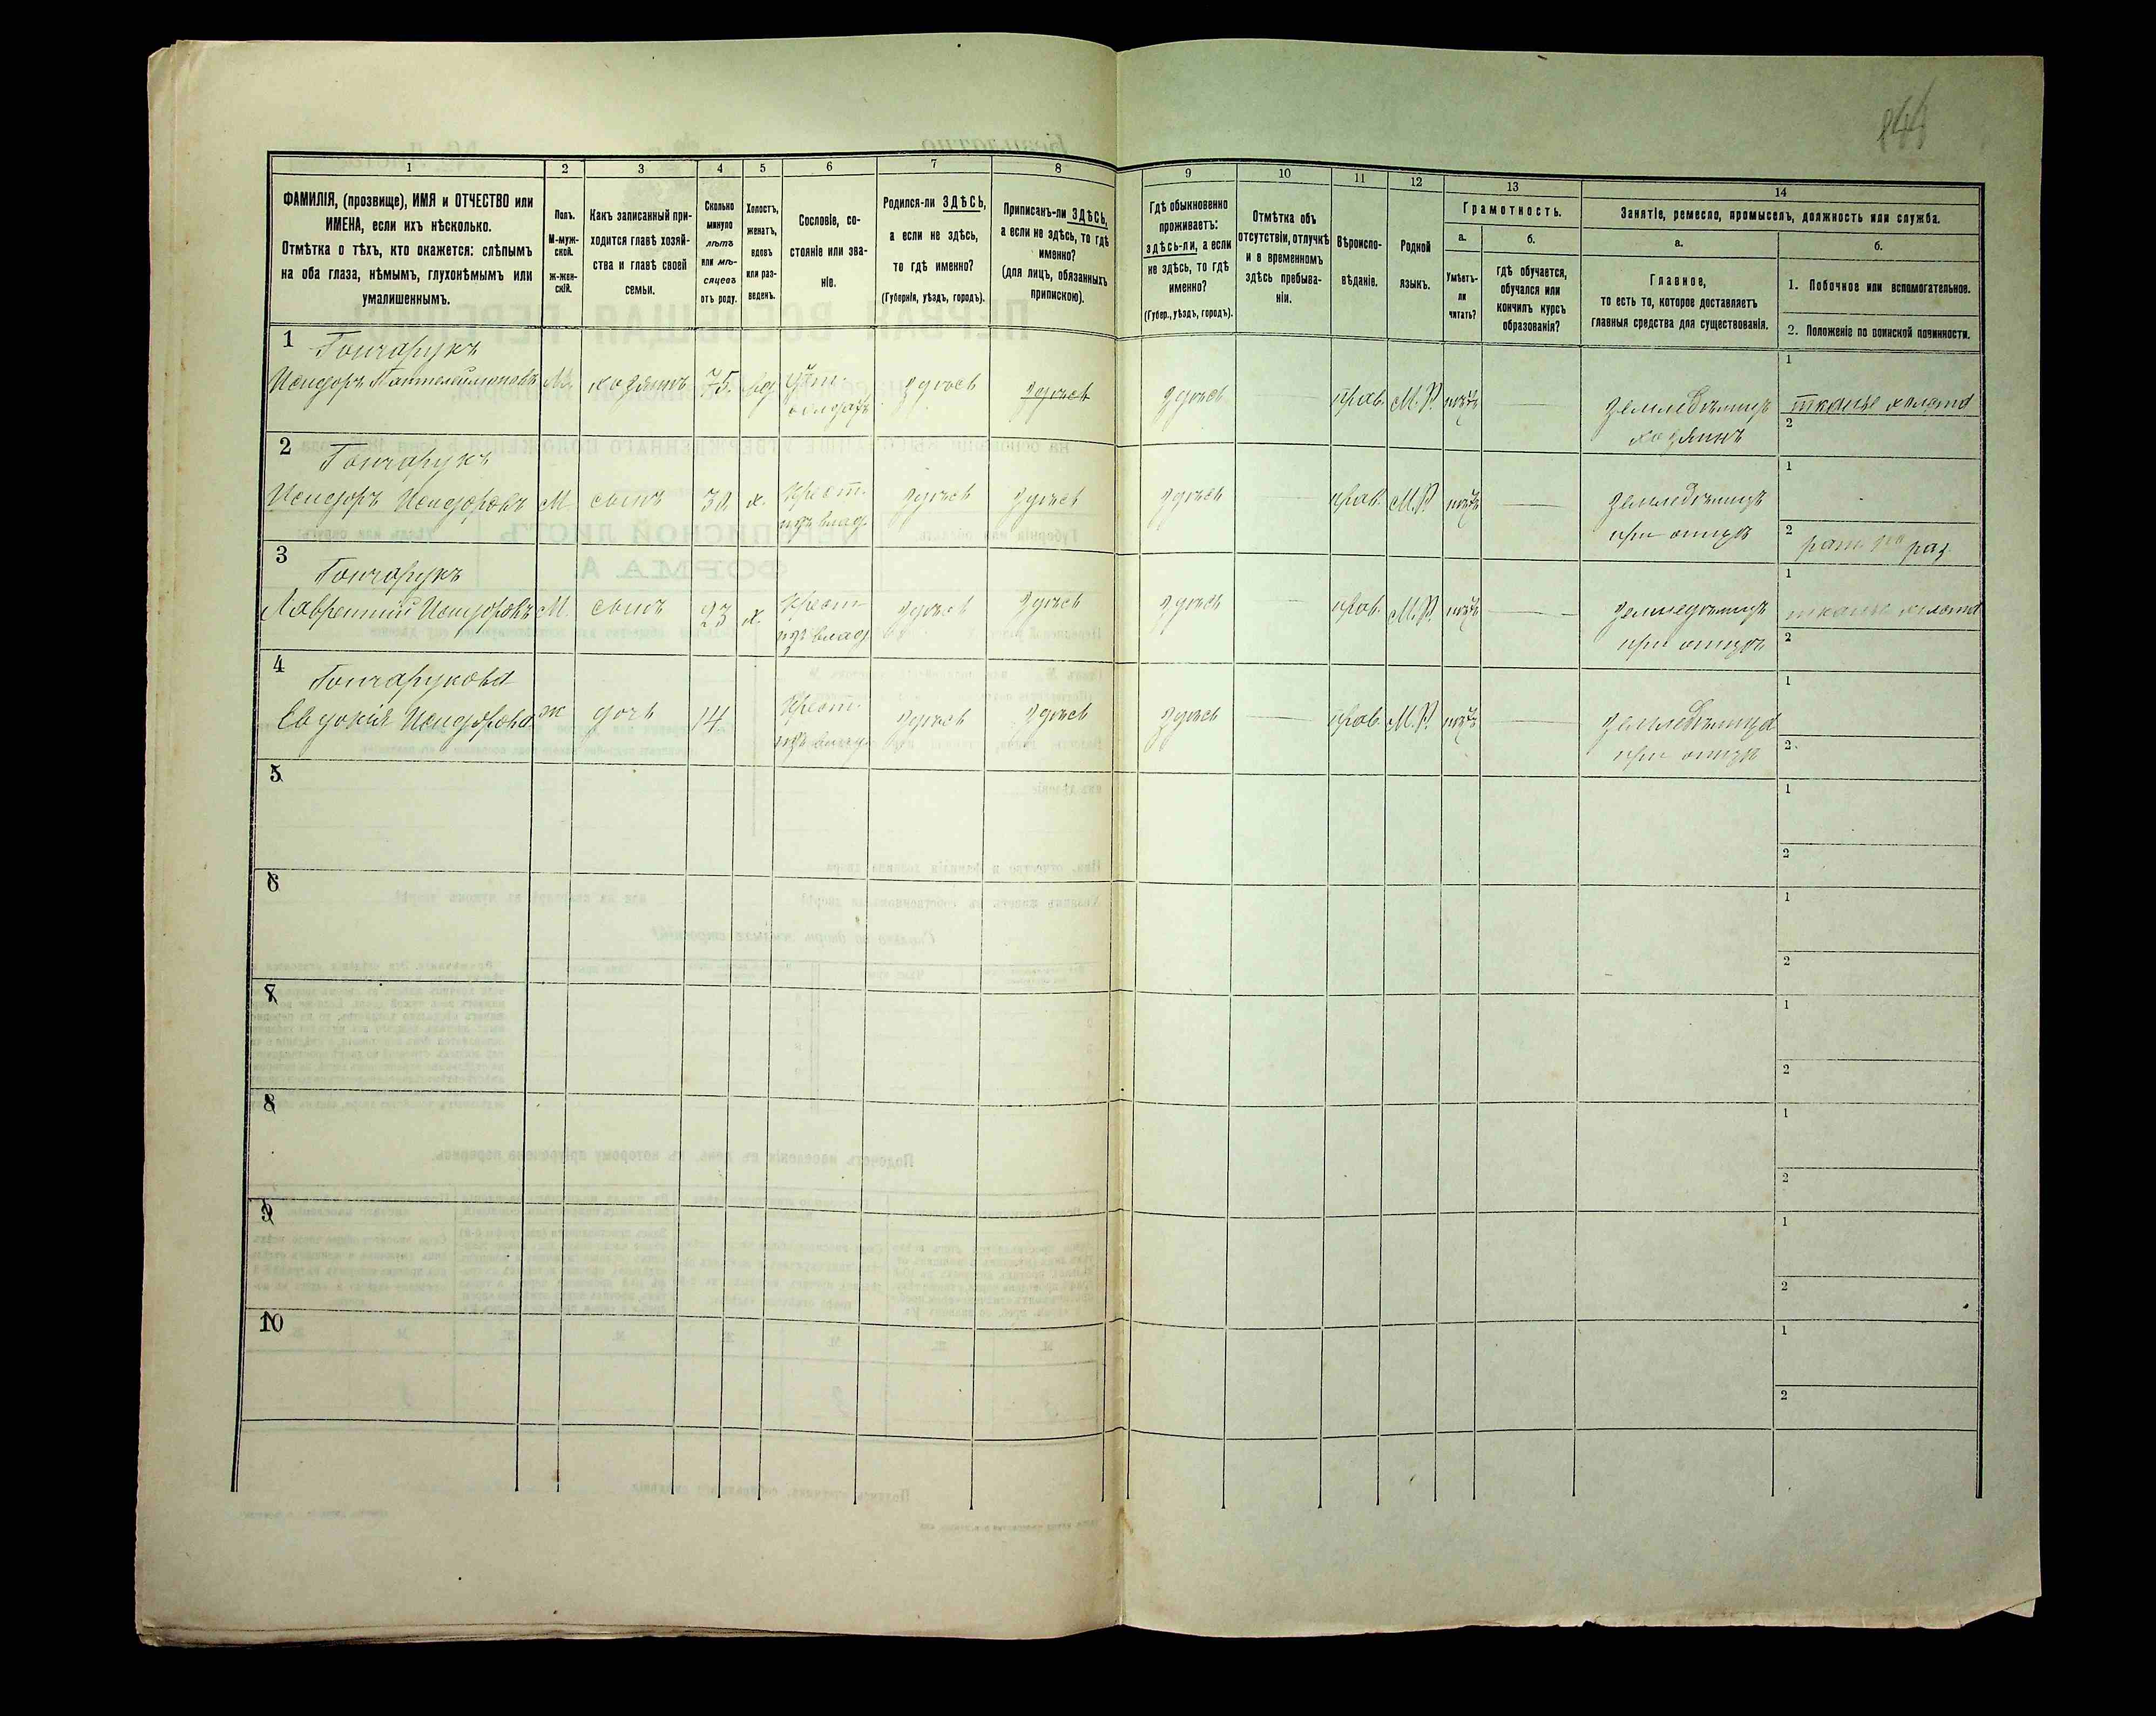 144
1 2 3 4 5 6 7 8 9 10 11 12 13 14
ФАМИЛІЯ, (прозвище), ИМЯ и ОТЧЕСТВО или
ИМЕНА, если ихъ нѣсколько.
Отмѣтка о тѣхъ, кто окажется: слѣпымъ
на оба глаза, нѣмымъ, глухонѣмымъ или
умалишеннымъ.
Полъ.
М-муж-
ской.
ж-жен-
скій.
Какъ записанный при-
ходится главѣ хозяй-
ства и главѣ своей
семьи.
Сколько
минуло
лѣтъ
или мѣ-
сяцевъ
отъ роду.
Холостъ,
женатъ,
вдовъ
или раз-
веденъ.
Сословіе, со-
стояніе или зва-
ніе.
Родился-ли ЗДѢСЬ,
а если не здѣсь,
то гдѣ именно?
(Губернія, уѣздъ, городъ).
Приписанъ-ли ЗДѢСЬ,
а если не здѣсь, то гдѣ
именно?
(для лицъ, обязанныхъ
припискою).
Гдѣ обыкновенно
проживаетъ:
здѣсь-ли, а если
не здѣсь, то гдѣ
именно?
(Губер., уѣздъ, городъ).
Отмѣтка объ
отсутствіи, отлучкѣ
и в временномъ
здѣсь пребыва-
ніи.
Вѣроиспо-
вѣданіе.
Родной
языкъ.
Грамотность.
а.
Умѣетъ-
ли
читать?
б.
гдѣ обучается,
обучался или
кончилъ курсъ
образованія?
Занятіе, ремесло, промыселъ, должность или служба.
а.
Главное,
то есть то, которое доставляетъ
главныя средства для существованія.
б.
1. Побочное или вспомогательное.
2. Положеніе по воинской повинности.
1 Гончарукъ
Исидоръ Пантелеймоновъ М. хозяинъ 75. вд солдатъ здѣсь здѣсь здѣсь прав. М.Р. нѣтъ земледѣлецъ 1 тканье холста
хозяинъ 2
2 Гончарукъ
Исидоръ Исидоровъ М. сынъ 30 х. Крест. здѣсь здѣсь здѣсь прав. М.Р. нѣтъ земледѣлецъ 1
изъ влад. при отцѣ 2
3 Гончарукъ
Лаврентій Исидоровъ М. сынъ 23 х. Крест. здѣсь здѣсь здѣсь прав. М.Р. нѣтъ земледѣлецъ 1 тканье холста
изъ влад. при отцѣ 2
4 Гончарукова
Евдокія Исидорова ж дочь 14. Крест. здѣсь здѣсь здѣсь прав. М.Р. нѣтъ земледѣлица 1
изъ влад. при отцѣ 2
5 1
2
6 1
2
7 1
2
8 1
2
9 1
2
10 1
2